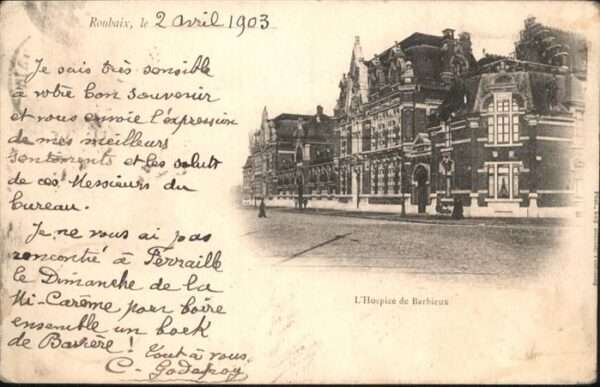 Roubaix, le 2 avril 1903
Je suis très sensible
à votre bon souvenir
et vous envoie l'expression
de mes meilleurs
sentiments et les saluts
de ces Messieurs du
bureau.
Je ne vous ai pas
rencontré à
le Dimanche de la
Mi-Carême, pour boire
ensemble un bock
de Barrère! Tout à vous,
C. Godefroy
L'Hospice de Barbieux